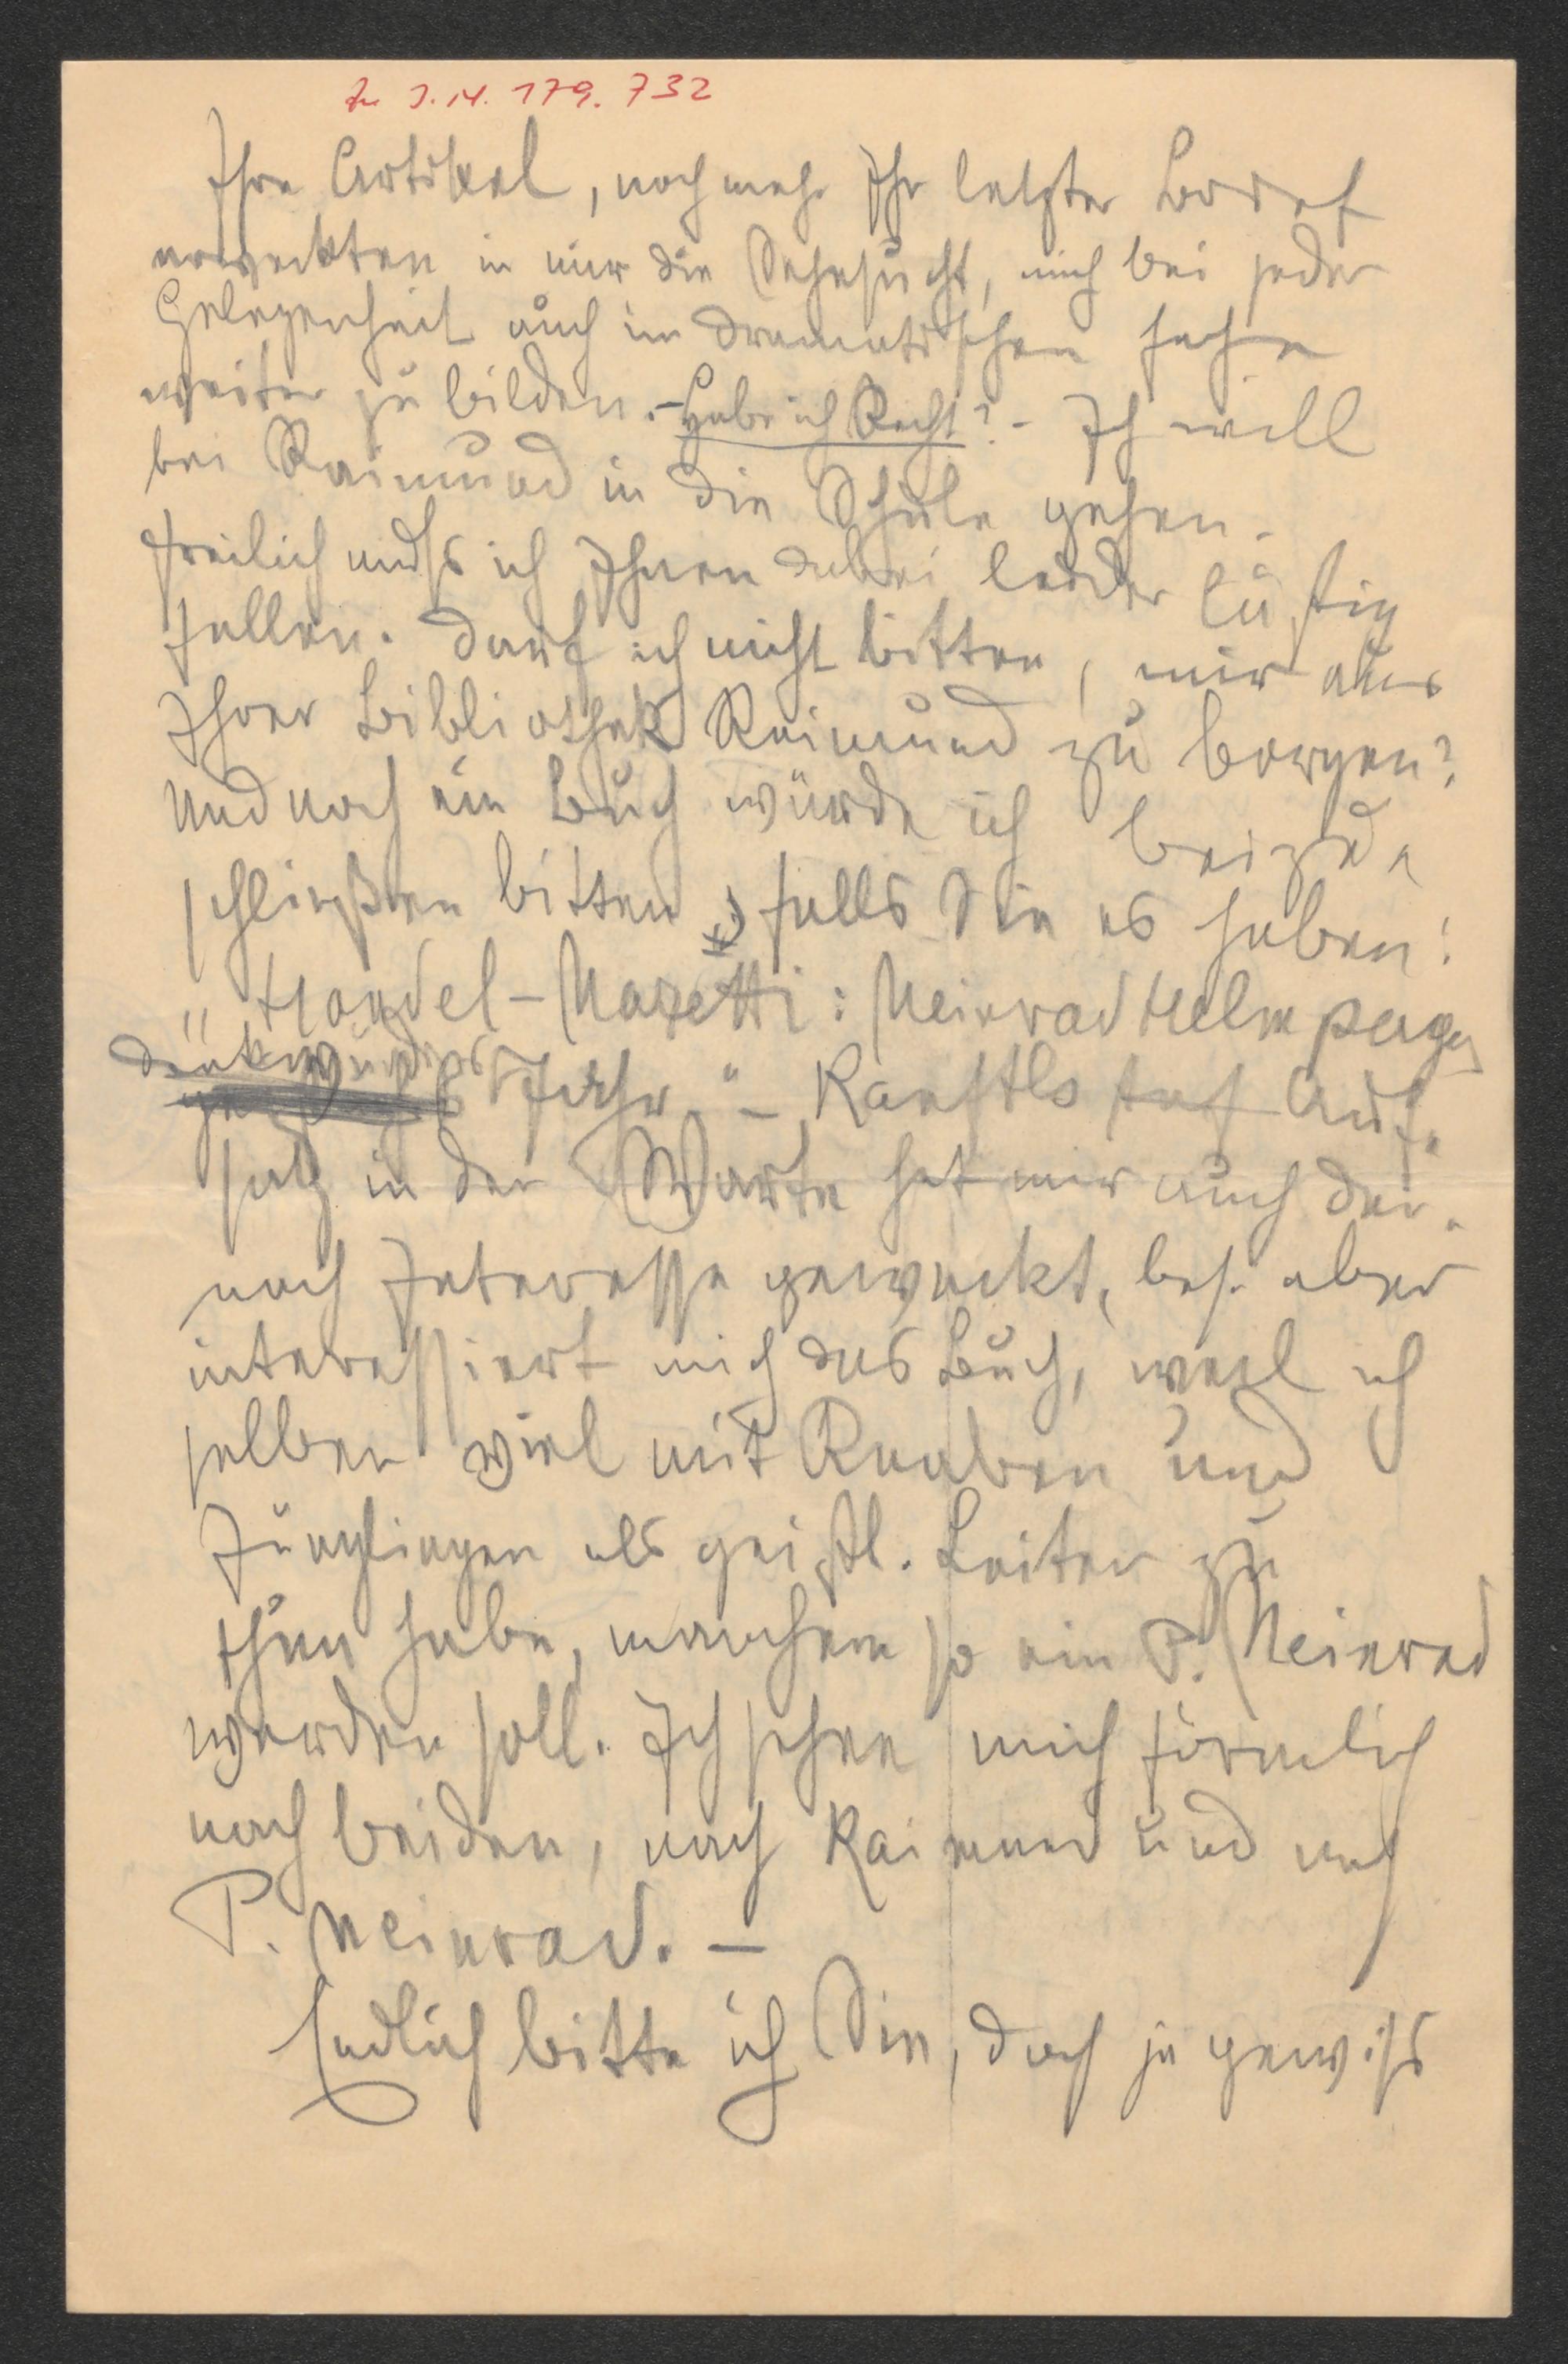 Zu I.N. 179.732
Ihre Artikel, noch mehr Ihr letzter Brief
erweckten in mir die Sehnsucht, mich bei jeder
Gelegenheit auch im dramatischen Fache
weiter zu bilden. – Habe ich Recht? – Ich will
bei Raimund in die Schule gehen.
Freilich muss ich Ihnen dabei leider lästig
fallen. Darf ich nicht bitten, mir aus
Ihrer Bibliothek Raimund zu borgen?
Und noch ein Buch würde ich beizu-
schließen bitten, falls Sie es haben:
„Handel-Mazetti: Meinrad Helmpergers
denkwürdiges
Jahr." – Ranftls Auf-
satz in der Warte hat mir auch dar-
nach Interesse geweckt, bes. aber
interessiert mich das Buch, weil ich
selber viel mit Knaben und
Jünglingen als geistl. Leiter zu
thun habe, manchem so ein P. Meinrad
werden soll. Ich sehne mich förmlich
nach beiden, nach Raimund und nach
P. Meinrad. –
Endlich bitte ich Sie, doch ja gewiss